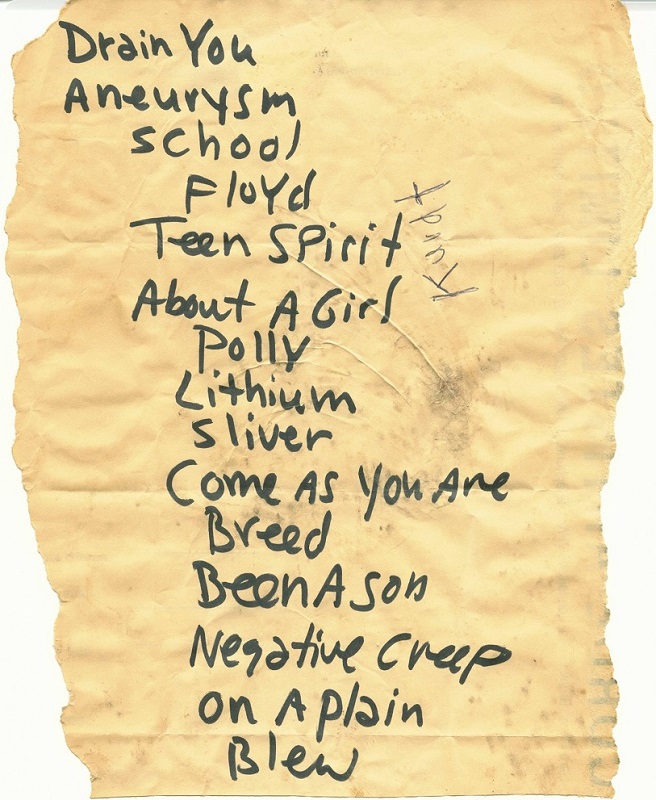 Drain You
Aneurysm
School
Floyd
Teen Spirit
About A Girl
Polly
Lithium
Sliver
Come As You Are
Breed
Been A Son
Negative Creep
On A Plain
Blew
Kurdt